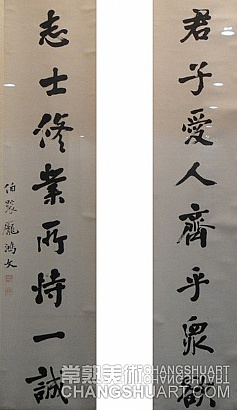 君子愛人齊乎眾歡
志士修業所恃一誠
伯裳龐鴻文
常熟美術CHANGSHUART
CHANGSHUART.COM